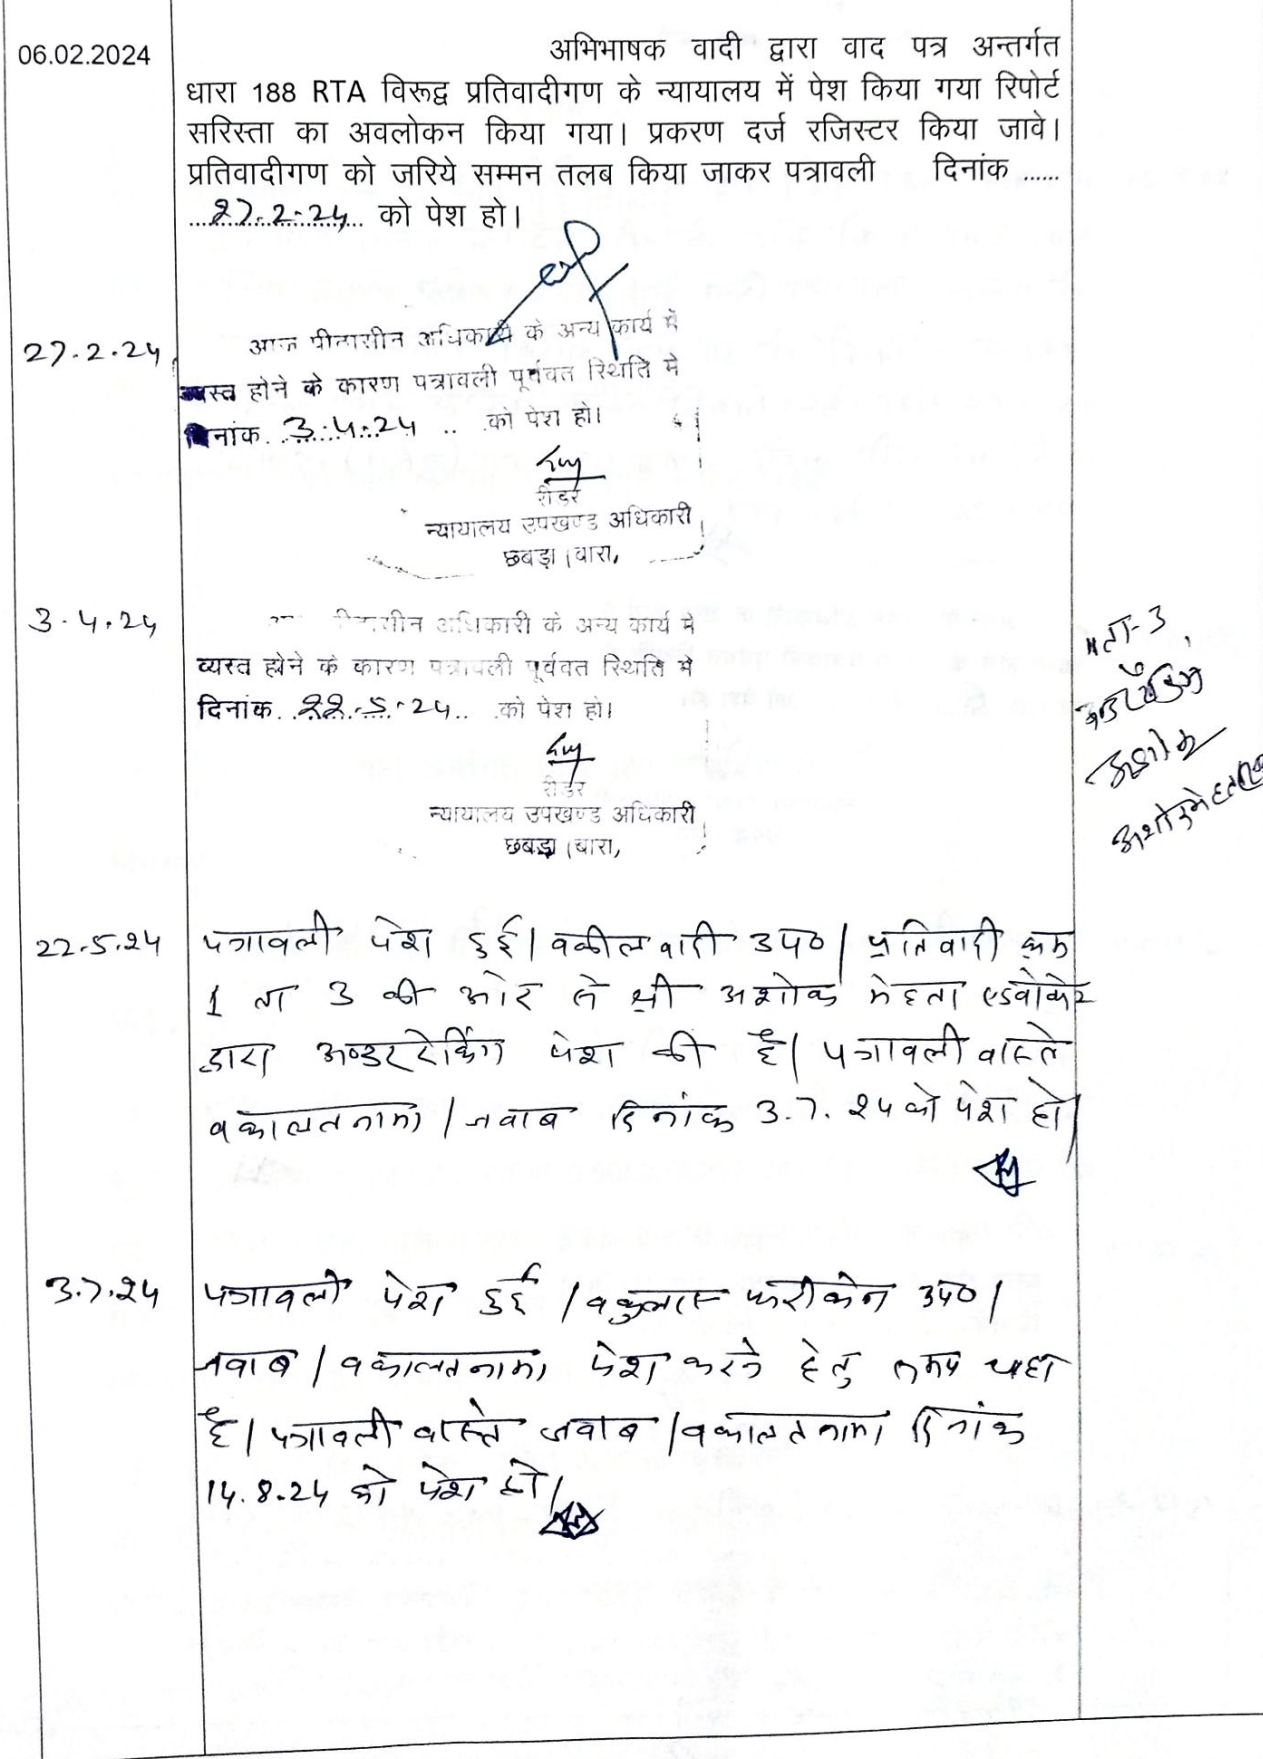 06.02.2024
अभिभाषक वादी द्वारा वाद पत्र अन्तर्गत
धारा 188 RTA विरूद्व प्रतिवादीगण के न्यायालय में पेश किया गया रिपोर्ट
सरिस्ता का अवलोकन किया गया। प्रकरण दर्ज रजिस्टर किया जावे।
प्रतिवादीगण को जरिये सम्मन तलब किया जाकर पत्रावली दिनांक ......
27.2.24 को पेश हो।
27.2.24
आज पीठासीन अधिकारी के अन्य कार्य में
व्यस्त होने के कारण पत्रावली पूर्ववत स्थिति में
दिनांक 3.4.24 को पेश हो।
रीडर
न्यायालय उपखण्ड अधिकारी
छबड़ा (बारा)
3.4.24
पीठासीन अधिकारी के अन्य कार्य में
व्यस्त होने के कारण पत्रावली पूर्ववत स्थिति में
दिनांक 22.5.24 को पेश हो।
रीडर
न्यायालय उपखण्ड अधिकारी
छबड़ा (बारा)
अशोक
22.5.24
पत्रावली पेश हुई। वकील वादी उप०। प्रतिवादी क्रम
1 ता 3 की ओर से श्री अशोक मेहता एडवोकेट
द्वारा अण्डरटेकिंग पेश की है। पत्रावली वास्ते
वकालतनामा / जवाब दिनांक 3.7.24 को पेश हो।
3.7.24
पत्रावली पेश हुई। वकुलाय फरीकेन उप०।
जवाब / वकालतनामा पेश करने हेतु समय चाहा
है। पत्रावली वास्ते जवाब / वकालतनामा दिनांक
14.8.24 को पेश हो।